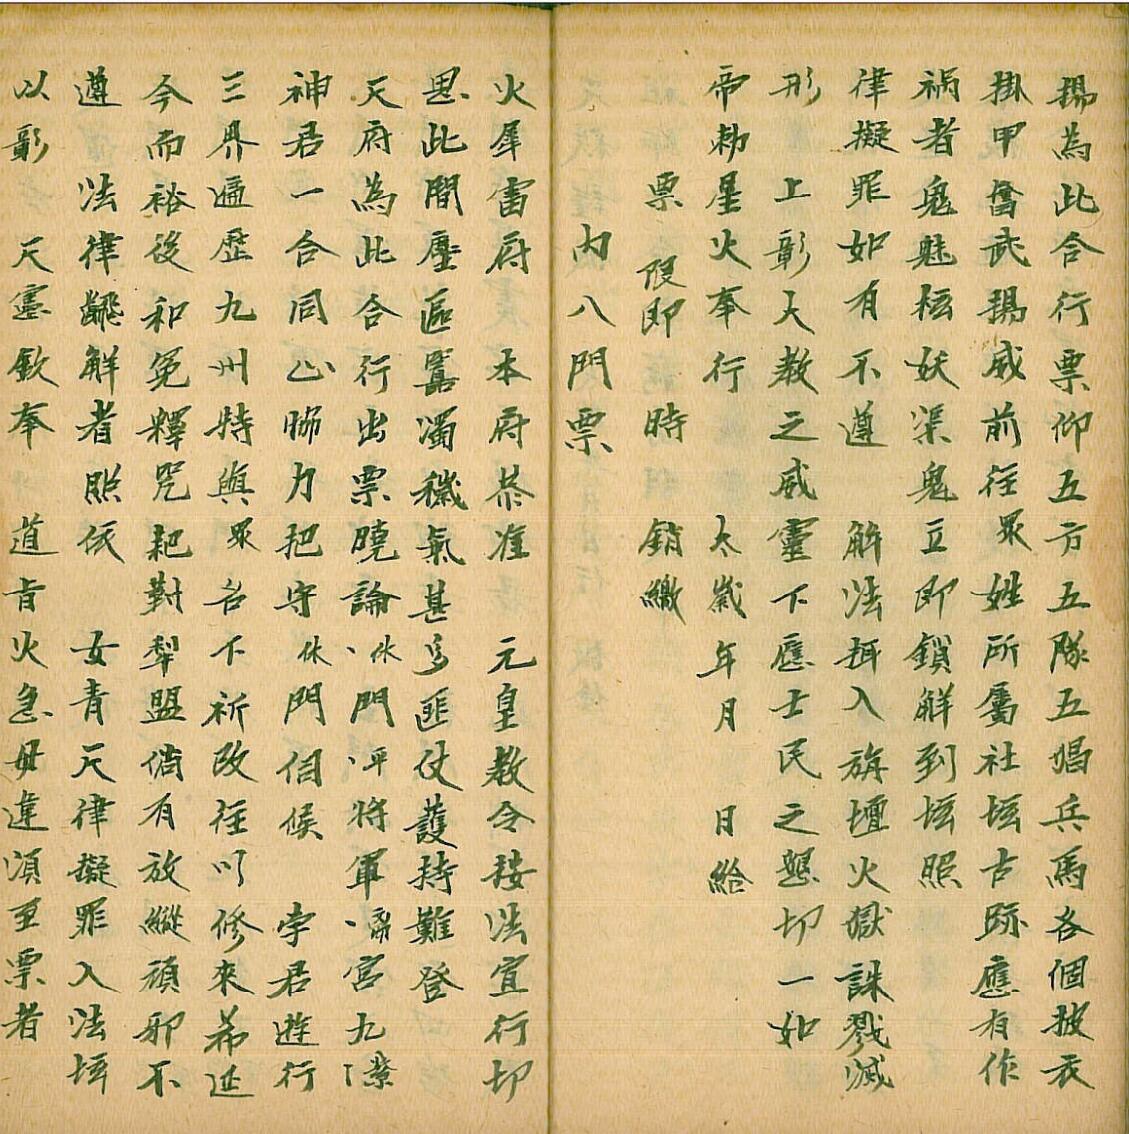 揚為此合行票仰五方五隊五猖兵馬各個披衣
掛甲奮武揚威前往眾姓所屬社坛古跡應有作
禍者鬼魅枉妖渠鬼立即鎖解到坛照
律擬罪如有不遵　解法拜入旃壇火獄誅戮滅
形上彰大教之威靈下應士民之懇切一如
帝勅星火奉行　太歲年月　日給
票假即時　銷繳
内八門票
火犀雷府本府恭准　元皇教令接法宣行切
思此間塵區囂濁穢氣甚多匪仗護持難登
天府為此合行出票曉諭、休門、坪將軍、宮九
神君一合同心協力把守休門伺候　孛君遊行
三界遍歷九州特與眾名下祈改往以修來希延
今而裕後和冤釋咒耙對犁盟倘有放縱頑邪不
遵法律解者照依　女青天律擬罪入法坛
以彰　天憲欽奉　道旨火急毋違須至票者